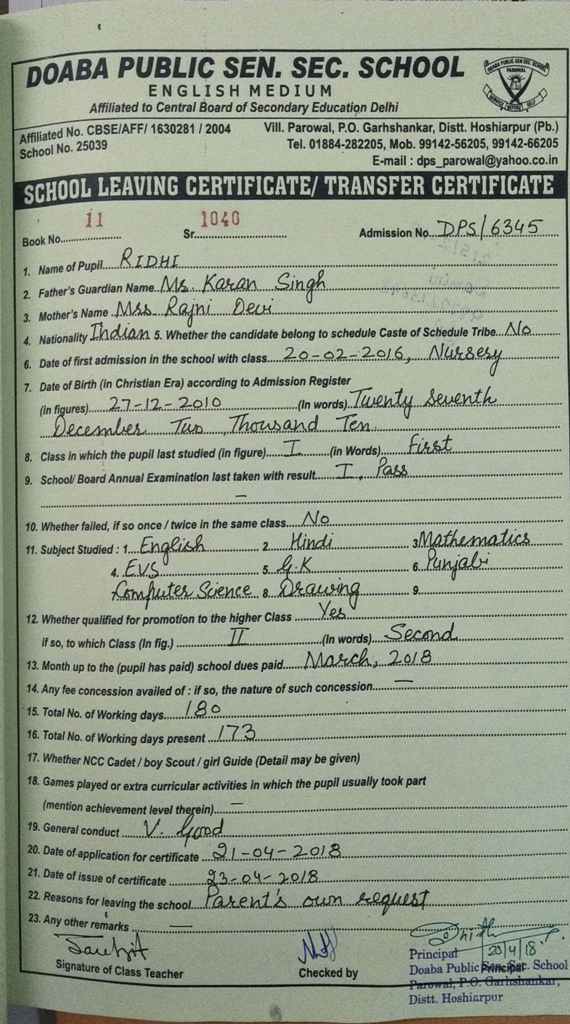 DOABA PUBLIC SEN. SEC. SCHOOL
ENGLISH MEDIUM
Affiliated to Central Board of Secondary Education Delhi
Affiliated No. CBSE/AFF/ 1630281 / 2004
School No. 25039
Vill. Parowal, P.O. Garhshankar, Distt. Hoshiarpur (Pb.)
Tel. 01884-282205, Mob. 99142-56205, 99142-66205
E-mail : dps_parowal@yahoo.co.in
SCHOOL LEAVING CERTIFICATE/ TRANSFER CERTIFICATE
Book No. 11 Sr. 1040 Admission No. DPS/6345
1. Name of Pupil RIDHI
2. Father's Guardian Name Mr. Karan Singh
3. Mother's Name Mrs. Rajni Devi
4. Nationality Indian 5. Whether the candidate belong to schedule Caste of Schedule Tribe No
6. Date of first admission in the school with class 20-02-2016, Nursery
7. Date of Birth (in Christian Era) according to Admission Register
(in figures) 27-12-2010 (In words) Twenty Seventh
December Two Thousand Ten
8. Class in which the pupil last studied (in figure) I (in Words) first
9. School/ Board Annual Examination last taken with result I, Pass
–
10. Whether failed, if so once / twice in the same class No
11. Subject Studied : 1 English 2 Hindi 3 Mathematics
4. EVS 5. G.K 6. Punjabi
Computer Science 8 Drawing 9.
12. Whether qualified for promotion to the higher Class Yes
if so, to which Class (In fig.) II (In words) Second
13. Month up to the (pupil has paid) school dues paid March, 2018
14. Any fee concession availed of : if so, the nature of such concession –
15. Total No. of Working days 180
16. Total No. of Working days present 173
17. Whether NCC Cadet / boy Scout / girl Guide (Detail may be given)
18. Games played or extra curricular activities in which the pupil usually took part
(mention achievement level therein) –
19. General conduct V. Good
20. Date of application for certificate 21-04-2018
21. Date of issue of certificate 23-04-2018
22. Reasons for leaving the school Parent's own request
23. Any other remarks –
Signature of Class Teacher Checked by Principal
Principal
Doaba Public Sen. Sec. School
Parowal, P.O. Garhshankar,
Distt. Hoshiarpur